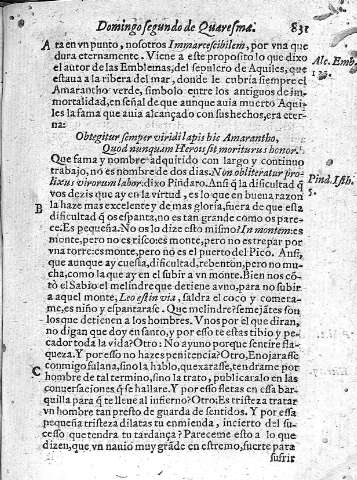 Domingo segundo de Quaresma. 831
ra en vn punto, nosotros Immarcescibilem, por vna que
dura eternamente. Viene a este proposito lo que dixo
el autor de las Emblemas, del sepulcro de Aquiles, que
estaua a la ribera del mar, donde le cubria siempre el
Amarantho verde, simbolo entre los antiguos de im-
mortalidad, en señal de que aunque auia muerto Aqui-
les la fama que auia alcançado con sus hechos, era eter-
na:
Alc. Emb.
Obtegitur semper viridi lapis hic Amarantho,
Quod nunquam Herous sit moriturus honor.
Que fama y nombre adquirido con largo y continuo
trabajo, no es nombre de dos dias. Non obliteratur pro-
lixus virorum labor: dixo Pindaro. Ansi q̃ la dificultad q̃
vos dezis que ay en la virtud, es lo que en buena razon
la haze mas excelente y de mas gloria, fuera de que esta
dificultad q̃ os espanta, no es tan grande como os pare-
ce. Es pequeña. No os lo dize esto mismo? In montem: es
monte, pero no es risco: es monte, pero no es trepar por
vna torre: es monte, pero no es el puerto del Pico. Ansi,
que aunque ay cuesta, dificultad, rebenton, pero no mu-
cha, como la que ay en el subir a vn monte. Bien nos cõ-
tò el Sabio el melindre que detiene a vno, para no subir
a aquel monte, Leo est in via, saldra el coco y cometa-
me, es niño y espantarase. Que melindre? semejãtes son
los que detienen a los hombres. Vnos por el que diran,
no digan que doy en santo, y por esso te estas tibio y pe-
cador toda la vida? Otro: No ayuno porque sentire fla-
queza. Y por esso no hazes penitencia? Otro, Enojarase
conmigo fulana, sino la hablo, quexarase, tendrame por
hombre de tal termino, sino la trato, publicaralo en las
conuersaciones q̃ se hallare. Y por esso fletas en essa bar-
quilla para q̃ te lleue al infierno? Otro: Es tristeza tratar
vn hombre tan presto de guarda de sentidos. Y por essa
pequeña tristeza dilatas tu enmienda, incierto del su-
cesso que tendra tu tardança? Pareceme esto a lo que
dizen, que vn nauio muy grãde en estremo, fuerte para
sufrir
Pind. Isth.
5.
B
C